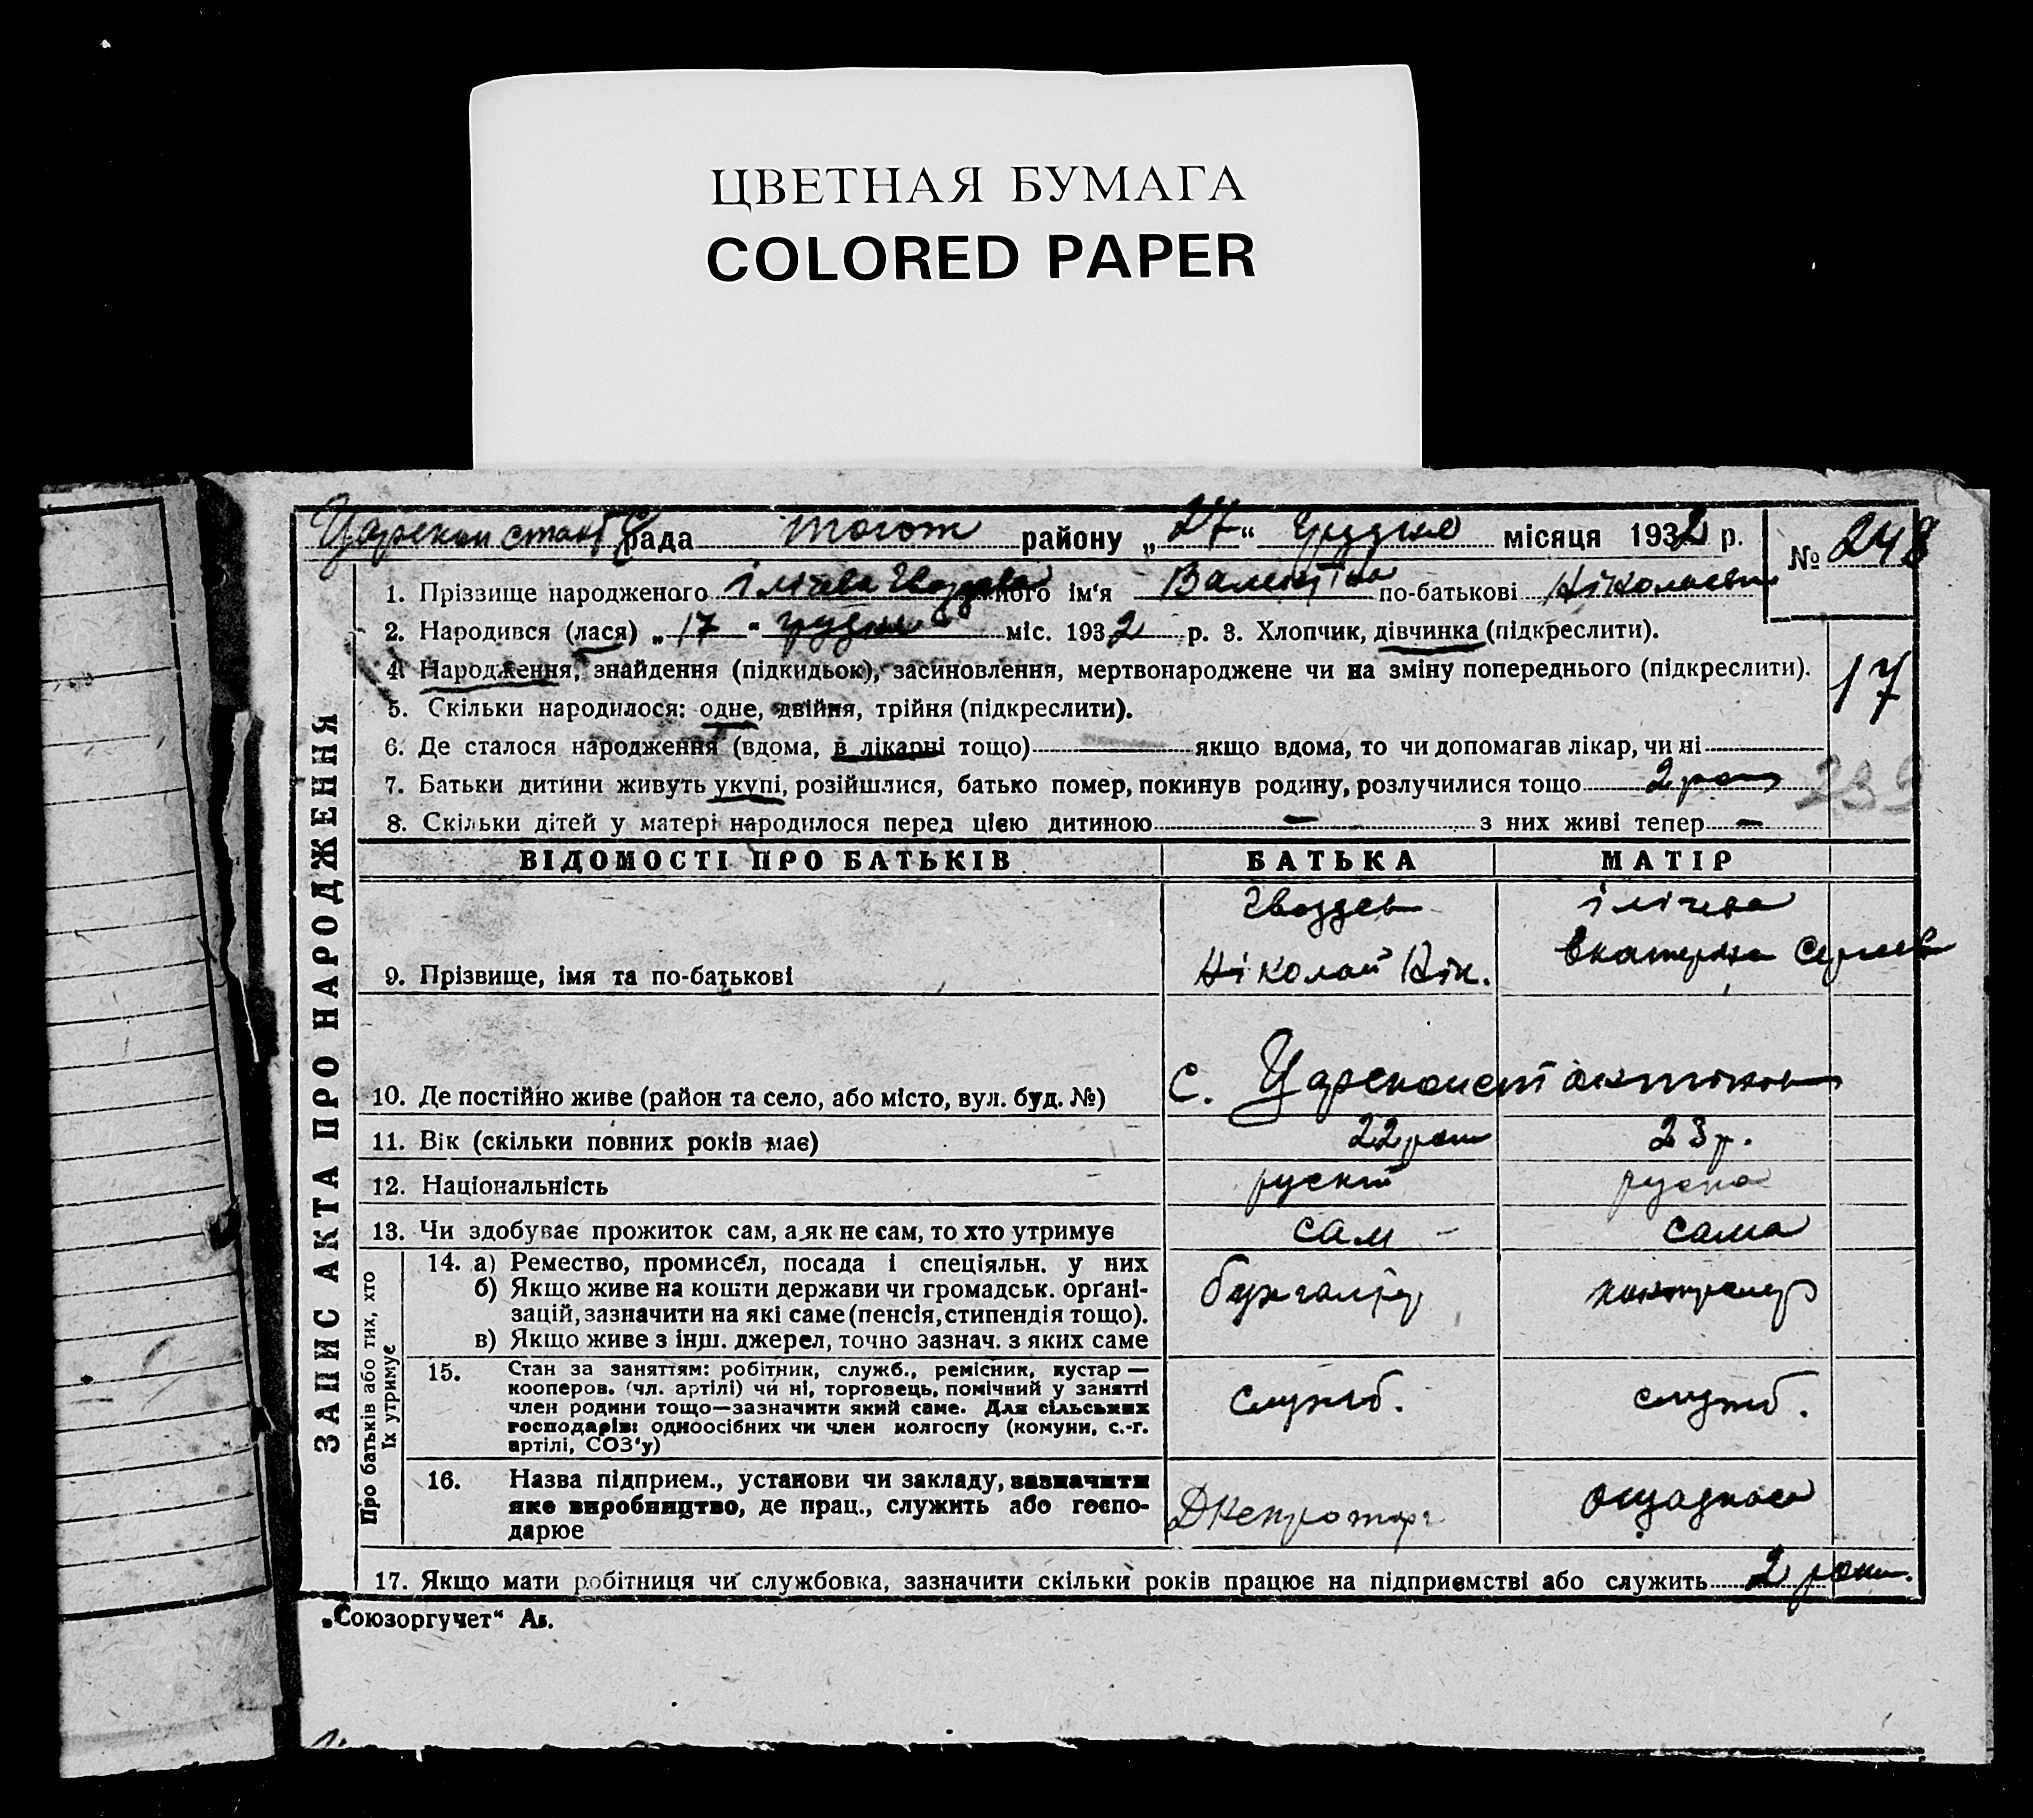 ЦВЕТНАЯ БУМАГА
COLORED PAPER
рада тогож району „27“ Грудня місяця 1932 р. № 248
1. Пріззище народженого Ілічева Гвоздева ім‘я Валентіна по-батькові Ніколаевн
2. Народився (лася) „17“ грудня міс. 1932 р. 3. Хлопчик, дівчинка (підкреслити).
4. Народження, знайдення (підкидьок), засиновлення, мертвонароджене чи на зміну попереднього (підкреслити).
17
5. Скільки народилося: одне, двійня, трійня (підкреслити).
6. Де сталося народження (вдома, в лікарні тощо) якщо вдома, то чи допомагав лікар, чи ні
7. Батьки дитини живуть укупі, розійшлися, батько помер, покинув родину, розлучилися тощо 2 рок
239
8. Скільки дітей у матері народилося перед цією дитиною — з них живі тепер —
ЗАПИС АКТА ПРО НАРОДЖЕННЯ
ВІДОМОСТІ ПРО БАТЬКІВ БАТЬКА МАТІР
Гвоздев Ілічева
9. Прізвище, імя та по-батькові Ніколай Нік. Екатеріна Сергеев
10. Де постійно живе (район та село, або місто, вул. буд. №) с. Цареконстантіновк
11. Вік (скільки повних років має) 22 рок 23 р.
12. Національність рускій руска
13. Чи здобуває прожиток сам, а як не сам, то хто утримує сам сама
Про батьків або тих, хто їх утримує
14. а) Ремество, промисел, посада і спеціяльн. у них
б) Якщо живе на кошти держави чи громадськ. орґані-
зацій, зазначити на які саме (пенсія, стипендія тощо).
в) Якщо живе з інш. джерел, точно зазнач. з яких саме
бухгалтер контролер
15. Стан за заняттям: робітник, служб., ремісник, кустар —
кооперов. (чл. артілі) чи ні, торговець, помічний у занятті
член родини тощо—зазначити який саме. Для сільських
господарів: одноосібних чи член колгоспу (комуни, с.-г.
артілі, СОЗ‘у)
служб. служб.
16. Назва підприєм., установи чи закладу, зазначити
яке виробництво, де прац., служить або госпо-
дарює
Днепроторг ощадкаса
17. Якщо мати робітниця чи службовка, зазначити скільки років працює на підприємстві або служить 2 роки.
„Союзоргучет“ Ав.